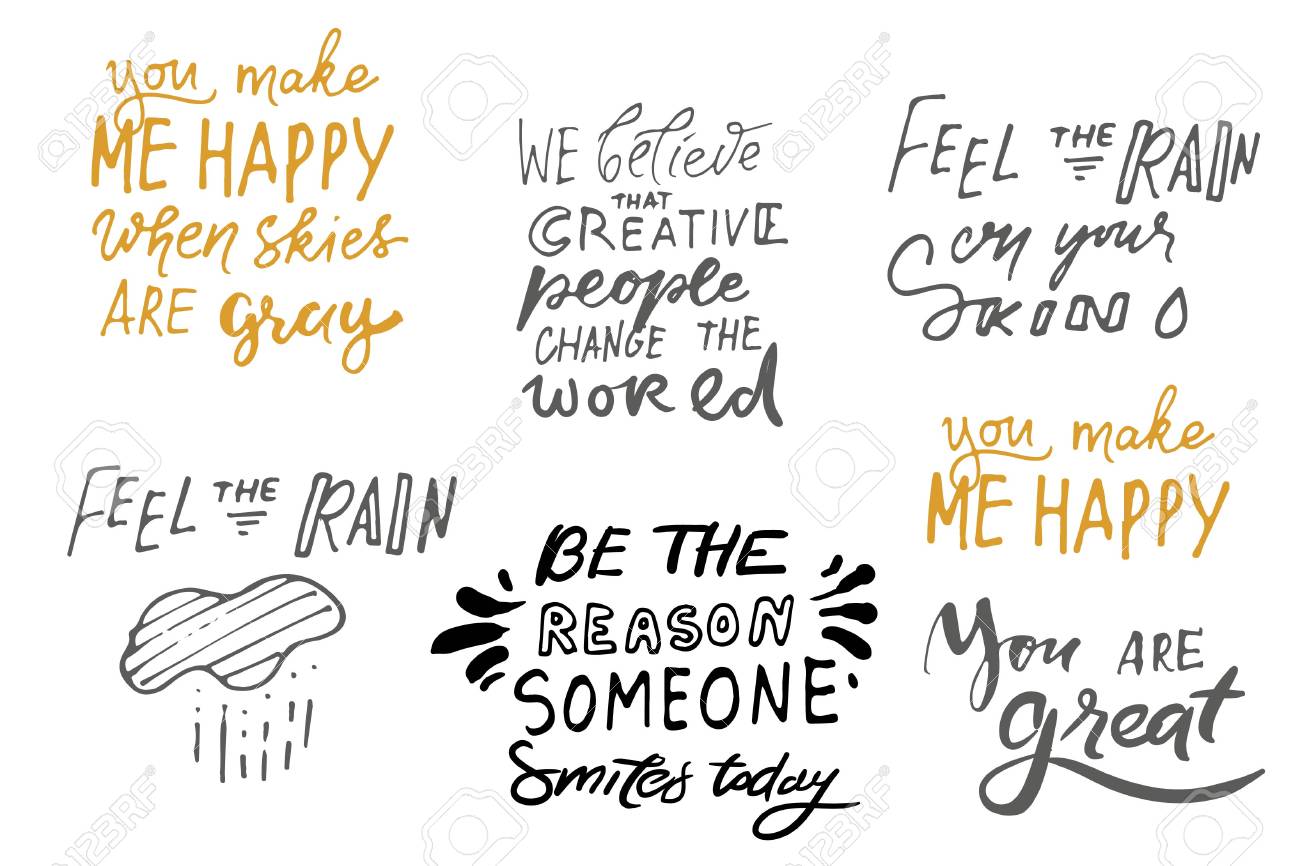 you make
ME HAPPY
when skies
ARE gray
WE believe
THAT
CREATIVE
people
CHANGE THE
woRld
FEEL THE RAIN
on your
SKIN
FEEL THE RAIN
BE THE
REASON
SOMEONE
Smiles today
you make
ME HAPPY
You ARE
great
123RF